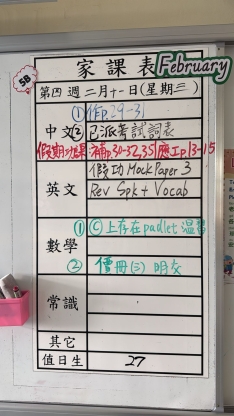 家課表
February
5B
第四週 二月十一日(星期三)
中文
① 作p.29-31
② 已派考試詞表
假期功課 補p.30-32,35 應工p.13-15
英文
假功 Mock Paper 3
Rev Spk + Vocab
數學
① Ⓒ 上存在padlet 溫習
② 價冊(三) 明交
常識
其它
值日生 27